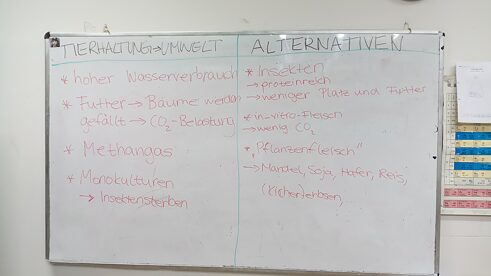 TIERHALTUNG→UMWELT
* hoher Wasserverbrauch
* Futter → Bäume werden
gefällt → CO₂-Belastung
* Methangas
* Monokulturen
→ Insektensterben
ALTERNATIVEN
* Insekten
→ proteinreich
→ weniger Platz und Futter
* in-vitro-Fleisch
→ wenig CO₂
* „Pflanzenfleisch"
→ Mandel, Soja, Hafer, Reis,
(Kicher)erbsen,